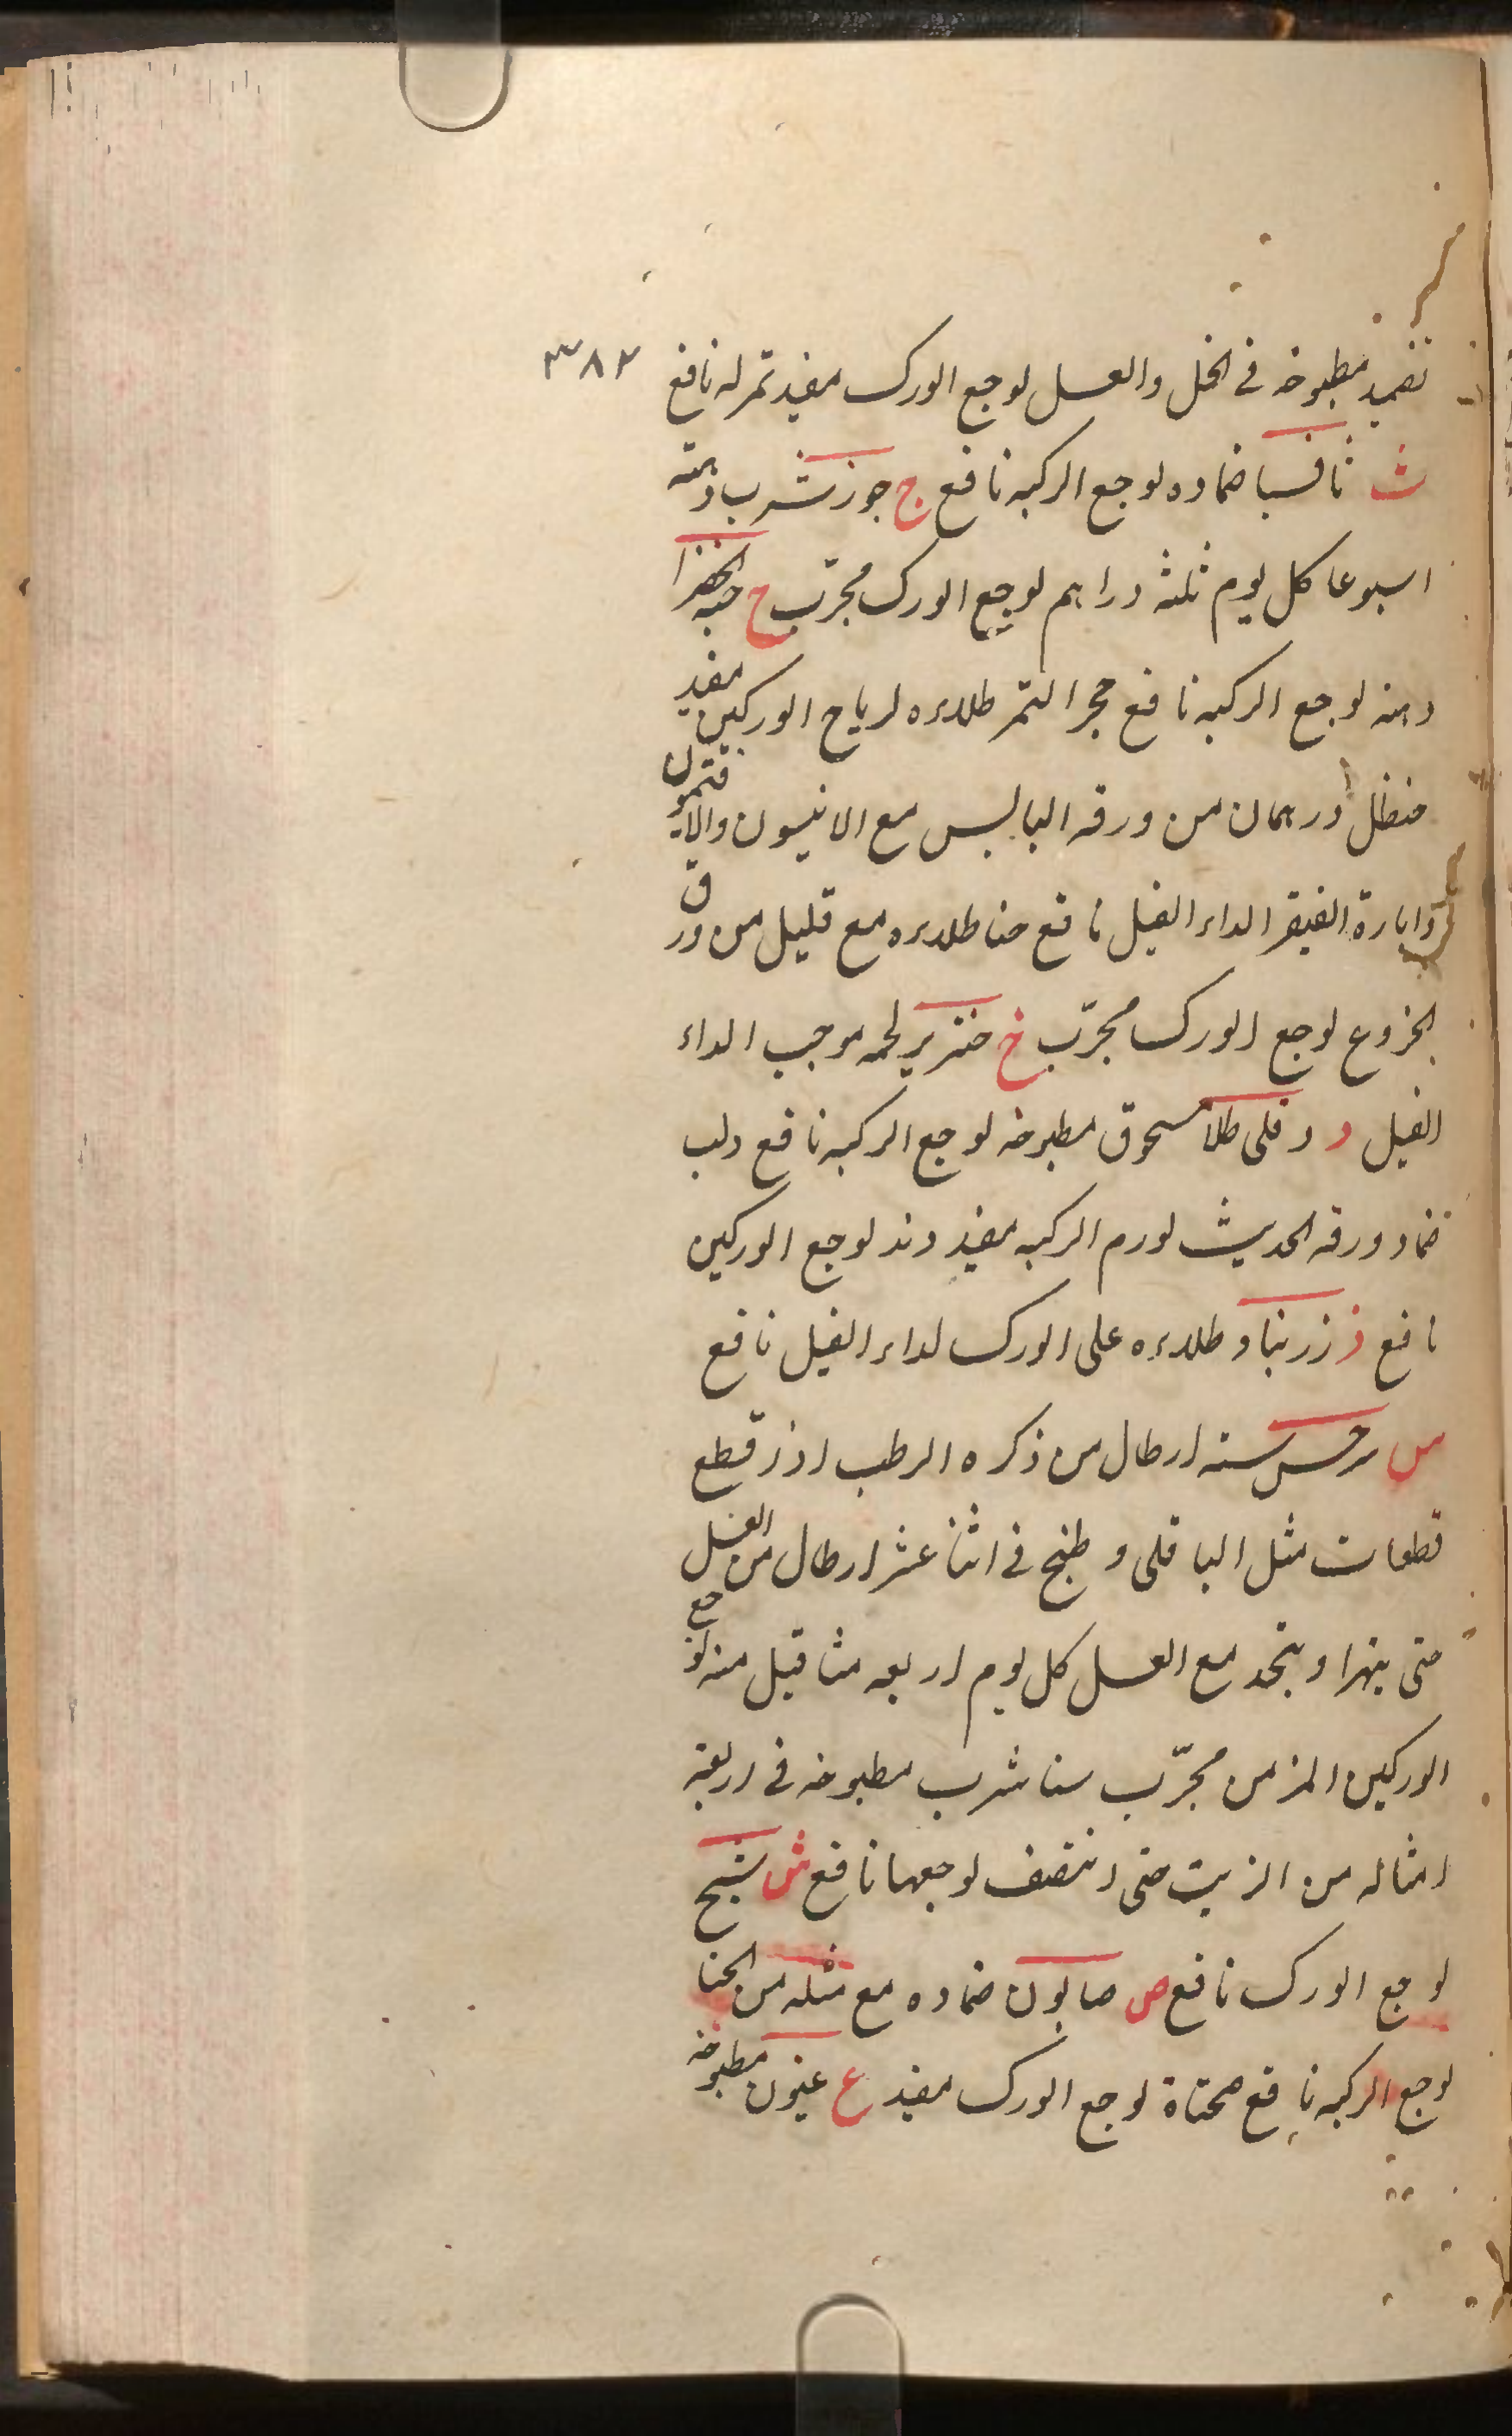 تضمید مطبوخه فی الخل والعسل لوجع الورک مفید تمر له نافع ٣٨٢
ث ثافسیا ضماده لوجع الرکبه نافع ج جوز شرب دهنه
اسبوعا کل یوم ثلثه دراهم لوجع الورک مجرّب ح حبه الخضرا
دهنه لوجع الرکبه نافع حجر التمر طلاءه لریاح الورکین مفید
حنظل درهمان من ورقه الیابس مع الانیسون والافتمون
وایارة الفیقر الداء الفیل نافع حنا طلاءه مع قلیل من ورق
الخروع لوجع الورک مجرّب خ خنزیر لحمه موجب الداء
الفیل د دفلی طلا مسحوق مطبوخه لوجع الرکبه نافع دلب
ضماد ورقه الحدیث لورم الرکبه مفید دند لوجع الورکین
نافع ز زرنباد طلاءه علی الورک لداء الفیل نافع
س سرخس سته ارطال من ذکره الرطب اذز قطع
قطعات مثل الباقلی و طبخ فی اثنا عشر ارطال من العسل
حتی ینهرا و یتخد مع العسل کل یوم اربعه مثاقیل منه لوجع
الورکین المزمن مجرّب سنا شرب مطبوخه فی اربعة
امثاله من الزیت حتی انتصف لوجعها نافع ش شیح
لوجع الورک نافع ص صابون ضماده مع مثله من الحنا
لوجع الرکبه نافع صحناة لوجع الورک مفید ع عیون مطبوخه